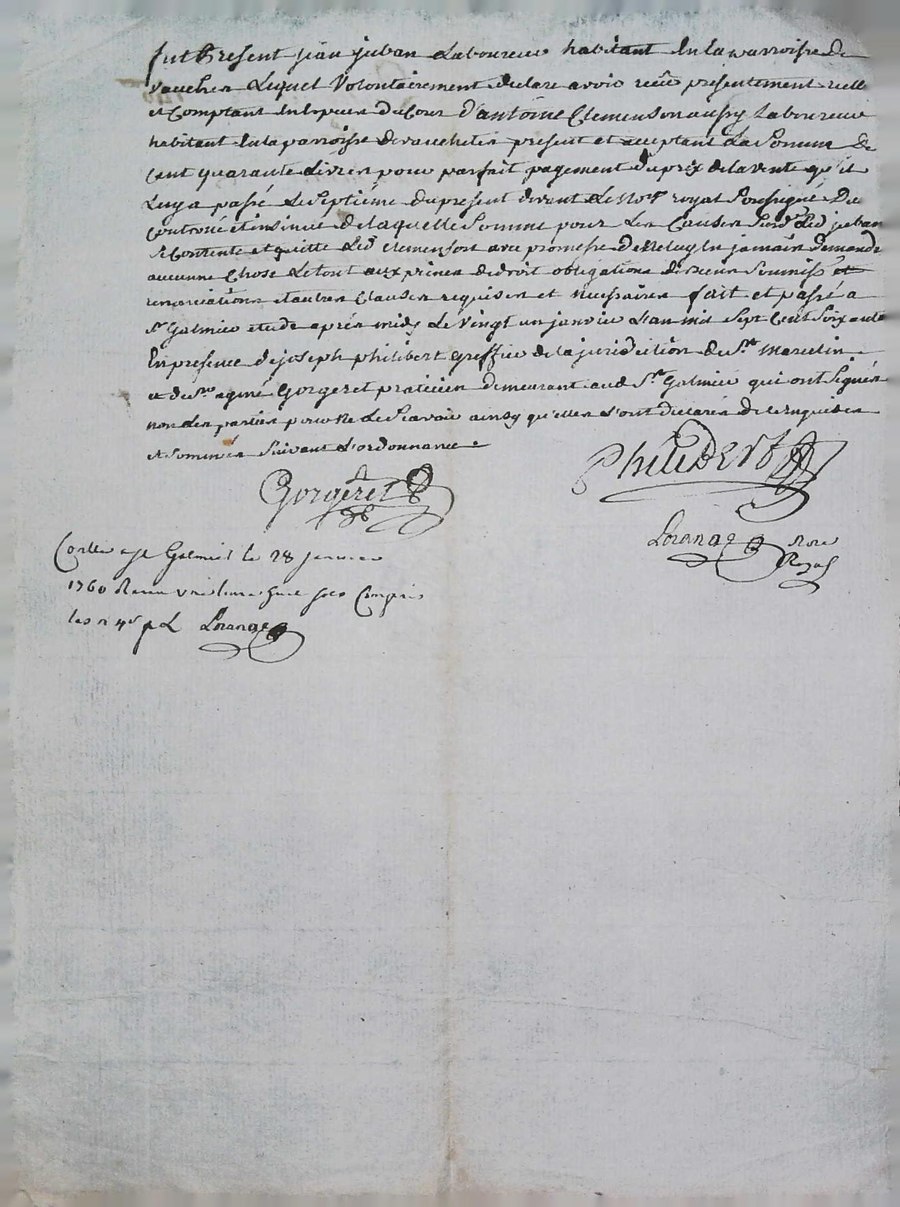 fut Present jean juban Laboureur habitant En la parroisse de
vauches Lequel Volontairement declare avoir reçû presentement reelle
et Comptant En Especes du Cour d'antoine Clemenson aussy Laboureur
habitant En la parroisse de present et acceptant La Somme de
Cent quarante Livres pour parfait payement du prix de la vente qu'il
Luy a passé Le septieme du present devant Le No.re royal Soussigné Du
Controllé et insinué De laquelle Somme pour Les Causes Sus d. Led. juban
Se Contente et quitte Led. Clemenson avec promesse de Ne luy En jamais demander
aucunne Chose Le tout aux peines de droit obligations de biens Soumiss. et
renonciations et autres Clauses requises et necessaires fait et passé a
St. Galmier etude après midy Le Vingt un janvier L'an mil Sept Cent Soixante
En presence de joseph philibert Greffier de la jurisdiction de St. Marcelin
et de Gorgeret praticien demeurant aud. St. Galmier qui ont Signés
non Les parties pour Ne Le Scavoir ainsy qu'elles L'ont declarés de ce Enquises
et Sommées Suivant L'ordonnance
Gorgeret Philibert
Loranges Nore
Royal
Con.lle a St Galmier le 28 janvier
1760 Recu une livre sols Compris
les n 4d p L Loranges